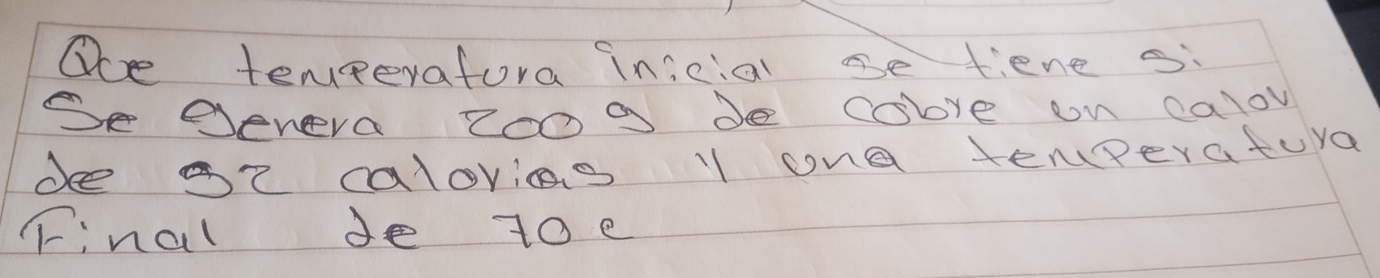 Que temperatura inicial se tiene si
Se genera 200 g de cobre un calor
de 92 calorias y una temperatura
Final de 70 c